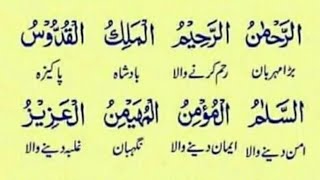 الرَّحْمٰنُ الرَّحِيْمُ الْمَلِكُ الْقُدُّوْسُ
بڑا مہربان رحم کرنے والا بادشاہ پاکیزہ
السَّلَامُ الْمُؤْمِنُ الْمُهَيْمِنُ الْعَزِيْزُ
امن دینے والا ایمان دینے والا نگہبان غلبہ دینے والا